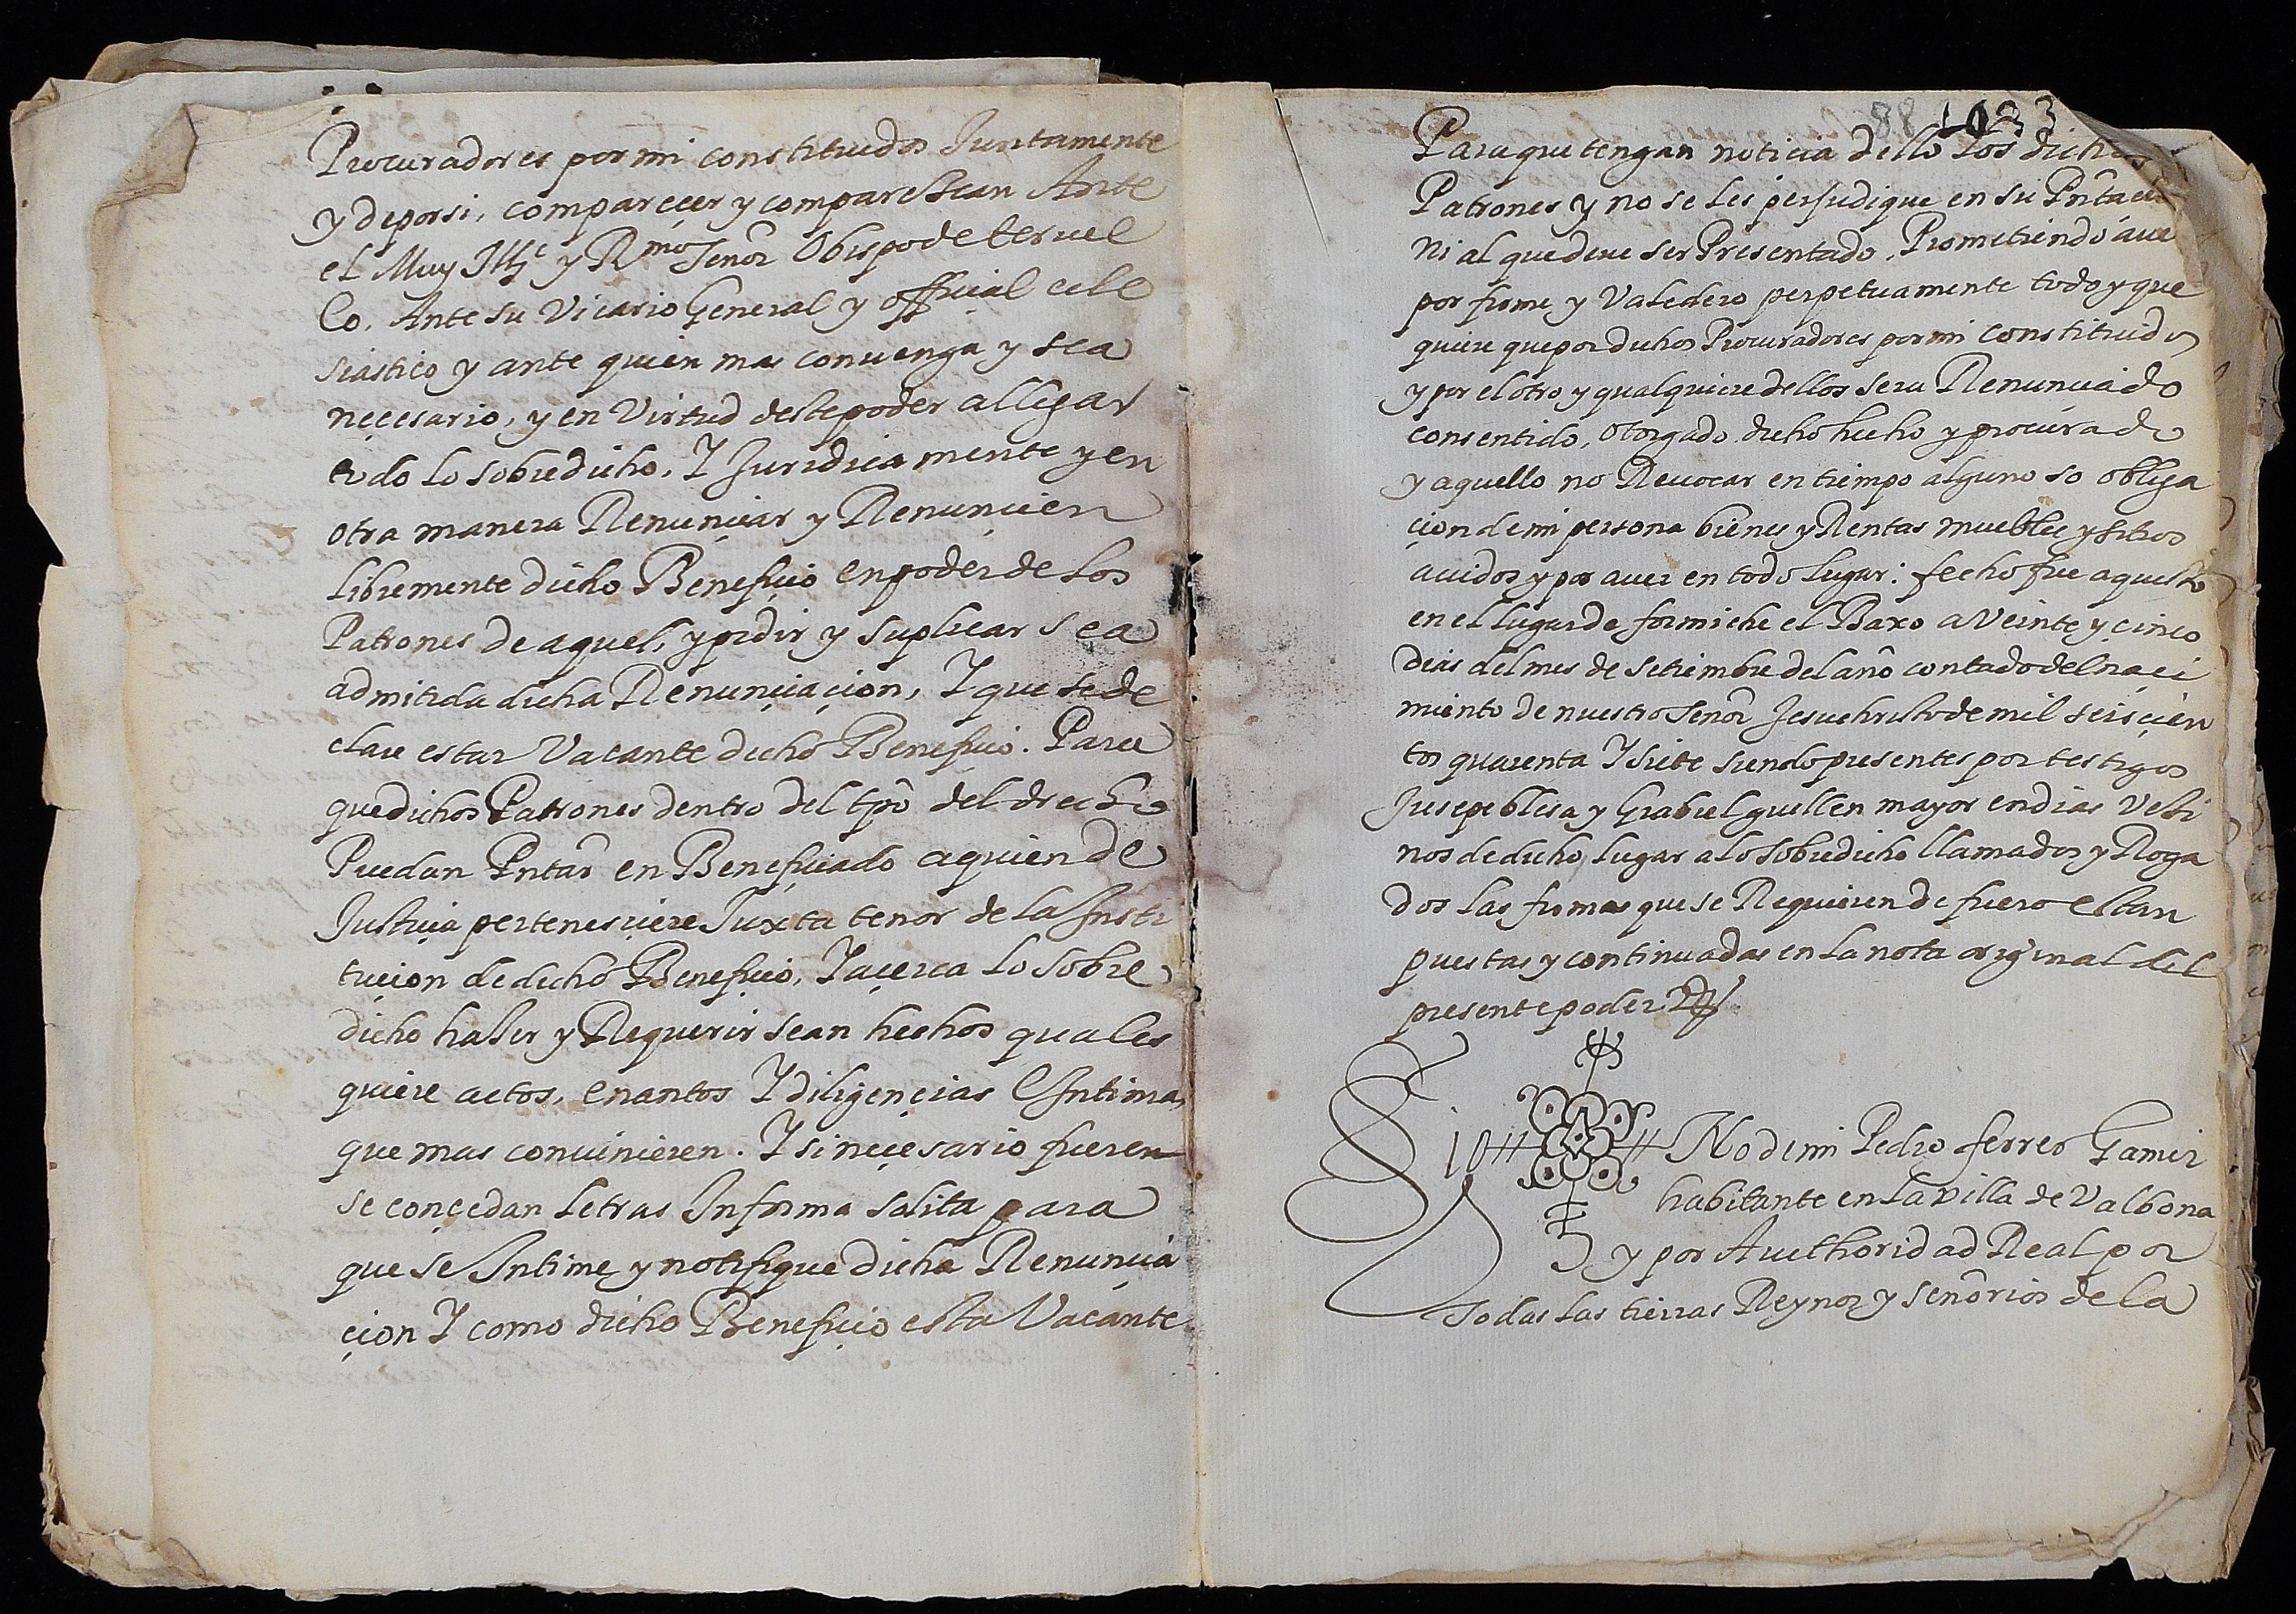 Procuradores por mi constituidos Juntamente
y deporsi, comparecer y comparescan Ante
el Muy Ille y Rmo Señor Obispo de teruel
Co. Ante su Vicario General y official ecle
siastico y ante quien mas conuenga y sea
neçesario, y en Virtud deste poder allegar
todo lo sobredicho, Y Juridica mente y en
otra manera Renunçiar y Renunçien
libremente dicho Benefiçio en poder de los
Patrones de aquel, y pidir y suplicar sea
admitida dicha Renunçiaçion, Y que se de
clare estar Vacante dicho Benefiçio. Para
que dichos Patrones dentro del tpo del drecho
Puedan Pntar en Benefiçiado a quien de
Justiçia pertenesçiere Juxta tenor de la Insti
tuçion de dicho Benefiçio, Y açerca lo sobre
dicho haser y Requerir sean hechos quales
quiere actos, enantos Y diligençias e Intimas
que mas conuinieren. Y si neçesario fueren
se conçedan letras In forma solita para
que se Intime y notifique dicha Renunçia
çion Y como dicho Benefiçio esta Vacante
88 1033
Para que tengan noticia dello los dichos
Patrones y no se les perjudique en su
Ni al que deue ser Presentado, Prometiendo auer
por firme y Valedero perpetuamente todo y que
quiere que por dichos Procuradores por mi constituidos
y por el otro y qualquiere dellos sera Renunciado
consentido, otorgado dicho hecho y procurado
y aquello no Reuocar en tiempo alguno so obliga
çion de mi persona bienes y Rentas muebles y sitios
auidos y por auer en todo lugar: fecho fue aquesto
en el lugar de formiche el Baxo a Veinte y çinco
dias del mes de setiembre del año contado del naçi
miento de nuestro Señor Jesuchristo de mil seisçien
tos quarenta Y siete siendo presentes por testigos
Jusepe blesa y Grabiel guillen mayor en dias Vesi
nos de dicho lugar a lo sobredicho llamados y Roga
dos las firmas que se Requieren de fuero estan
puestas y continuadas en la nota original del
presente poder
Sig No de mi Pedro ferrer Gamir
habitante en la villa de Valbona
y por Authoridad Real por
todas las tierras Reynos y señorios de la